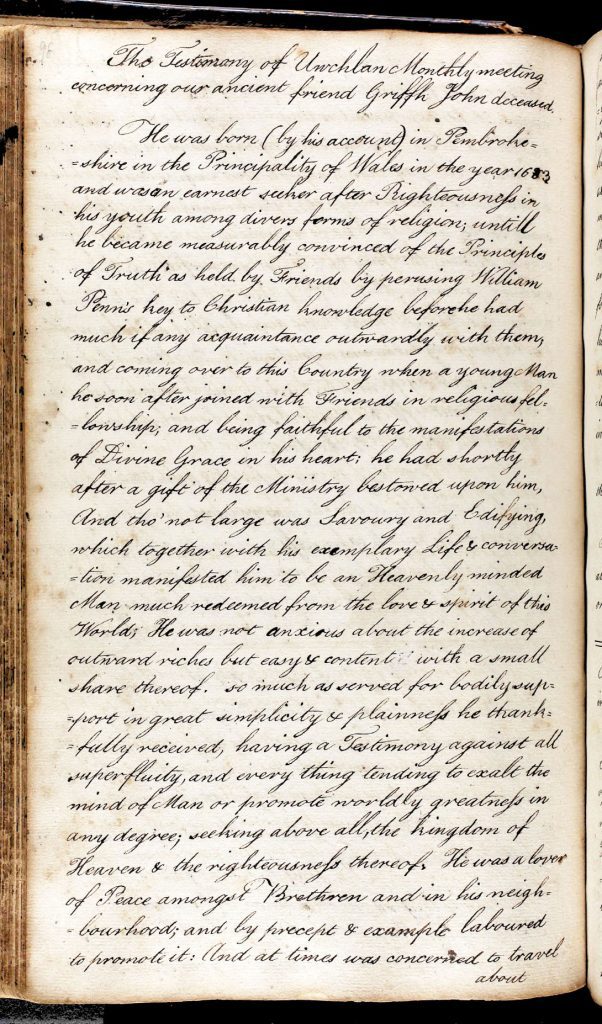 The Testimony of Uwchlan Monthly meeting
concerning our ancient friend Griffith John deceased.
He was born (by his account) in Pembroke=
=shire in the Principality of Wales in the year 1683
and was an earnest seeker after Righteousness in
his youth among divers forms of religion; untill
he became measurably convinced of the Principles
of Truth as held by Friends by perusing William
Penn's key to Christian knowledge before he had
much if any acquaintance outwardly with them,
and coming over to this Country when a young Man
he soon after joined with Friends in religious fel=
=lowship; and being faithful to the manifestations
of Divine Grace in his heart; he had shortly
after a gift of the Ministry bestowed upon him,
And tho' not large was Savoury and Edifying,
which together with his exemplary Life & conversa=
=tion manifested him to be an Heavenly minded
Man much redeemed from the love & spirit of this
World; He was not anxious about the increase of
outward riches but easy & content with a small
share thereof. so much as served for bodily sup=
=port in great simplicity & plainness he thank=
=fully received, having a Testimony against all
superfluity, and every thing tending to exalt the
mind of Man or promote worldly greatness in
any degree; seeking above all, the kingdom of
Heaven & the righteousness thereof. He was a lover
of Peace amongst Brethren and in his neigh=
=bourhood; and by precept & example laboured
to promote it: And at times was concerned to travel
about